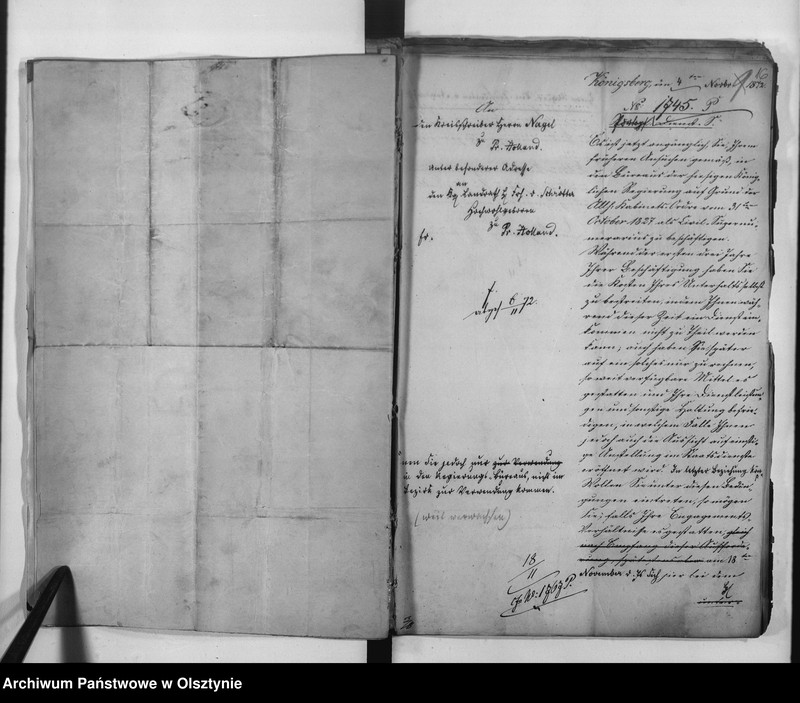 Königsberg, den 4ten Novbr 1872.
No 1745. P
An
den Kreisschreiber Herrn Nagel
zu
Pr. Holland.
unter besonderer Adresse
an
den Kgl. Landrath
Hochwohlgeboren
zu
Pr. Holland.
fr.
6/11 72.
Es ist jetzt angänglich, Sie, Ihrem
früheren Ansuchen gemäß, in
den Büreaus der hiesigen König-
lichen Regierung auf Grund der
Allh. Kabinets-Ordre vom 31ten
October 1827 als Civil-Supernu-
merarius zu beschäftigen.
Während der ersten drei Jahre
Ihrer Beschäftigung haben Sie
die Kosten Ihres Unterhalts selbst
zu bestreiten, indem Ihnen wäh-
rend dieser Zeit ein Dienstein-
kommen nicht zu Theil werden
kann; auch haben Sie später
auf ein solches nur zu rechnen,
so weit verfügbare Mittel es
gestatten und Ihre Dienstleistun-
gen und sonstige Haltung befrie-
digen, in welchem Falle Ihnen
jedoch auch die Aussicht auf einsti-
ge Anstellung im Staatsdienste
eröffnet wird.
Wollen Sie unter diesen Bedin-
gungen eintreten, so mögen
Sie, falls Ihre Engagements-
Verhältnisse es gestatten, gleich
nach Empfang dieser
am 18ten
November d. J. sich hier bei dem
die jedoch nur zur Verwendung
in den Regierungs-Büreaus, nicht im
Bezirk zur Verwendung kommen.
18/11
Archiwum Państwowe w Olsztynie